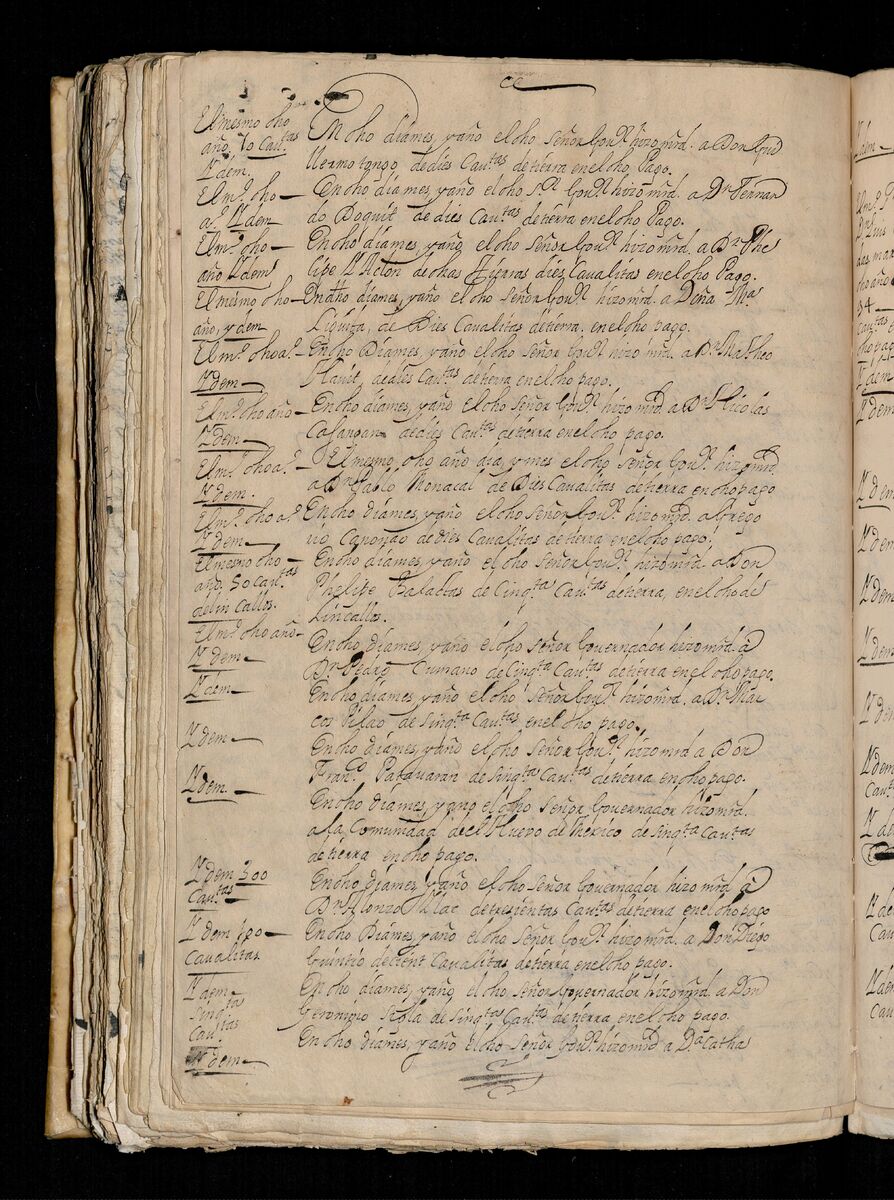 El mesmo dho
año, 10 Cautas
Ydem.
En dho dia mes, y año el dho Señor Gour. hizo mrd. a Don Gui
llermo tongo de dies Cautas de tierra en el dho Pago.
El mº. dho
aº. Ydem
En dho dia mes, y año el dho Sr. Gour. hizo mrd. a Dn Fernan
do Doquit de dies Cautas de tierra en el dho Pago.
El mº. dho
año Ydem
En dho dia mes, y año el dho Señor Gour. hizo mrd. a Dn. Phe
lipe de dhas tierras dies Caualitas en el dho Pago.
El mesmo dho
año, y dem
En dho dia mes, y año el dho Señor Gour. hizo mrd. a Doña Ma
Liquita, de Dies Caualitas de tierra. en el dho pago.
El mº. dho aº.
Ydem
En dho Dia mes, y año el dho Señor Gour. hizo mrd. a Dn. Matheo
de dies Cautas de tierra en el dho pago.
El mº. dho año
Ydem
En dho dia mes, y año el dho Señor Gour. hizo mrd. a Dn Nicolas
Casangan de dies Cautas de tierra en el dho pago.
El mº. dho aº.
Ydem.
El mesmo dho año dia, y mes el dho Señor Gour. hizo mrd.
a Dn Pablo Monacal de Dies Caualitas de tierra en dho pago
El mº. dho aº
Ydem
En dho dia mes, y año el dho Señor Gour. hizo mrd. a Grego
rio Caponao de dies Caualitas de tierra en el dho pago.
El mesmo dho
año, 50 Cautas
de lin Callos.
En dho dia mes, y año el dho Señor Gour. hizo mrd. a Don
Phelipe Baladtas de Cinqta Cautas de tierra, en el dho de
Lincallos.
El mº. dho año
Ydem
En dho dia mes, y año el dho Señor Governador hizo mrd. a
Dn Pedro Cumano de Cinqta Cautas de tierra en el dho pago.
Ydem
En dho dia mes, y año el dho Señor Gour. hizo mrd. a Dn. Mar
cos Pilao de Sinqta Cautas en el dho pago.
Ydem
En dho dia mes, y año el dho Señor Gour. hizo mrd a Don
Franco. Patauaran de Sinqta Cautas de tierra en dho pago.
Ydem
En dho dia mes, y año el dho Señor Governador hizo mrd.
a la Comunidad del Nuevo de Mexico de Sinqta Cautas
de tierra en dho pago.
Ydem 300
Cautas
En dho dia mes, y año el dho Señor Governador hizo mrd a
Dn. Alonzo de trescientas Cautas de tierra en el dho pago
Ydem 100
Caualitas
En dho Dia mes, y año el dho Señor Gour. hizo mrd. a Don Diego
Guintio de cient Caualitas de tierra en el dho pago.
Ydem
Sinqtas
Cautas
En dho dia mes, y año el dho Señor Governador hizo mrd. a Don
Geronimo Scola de Sinqtas Cautas de tierra en el dho pago.
Ydem
En dho dia mes, y año el dho Señor Gour. hizo mrd a Da Catha